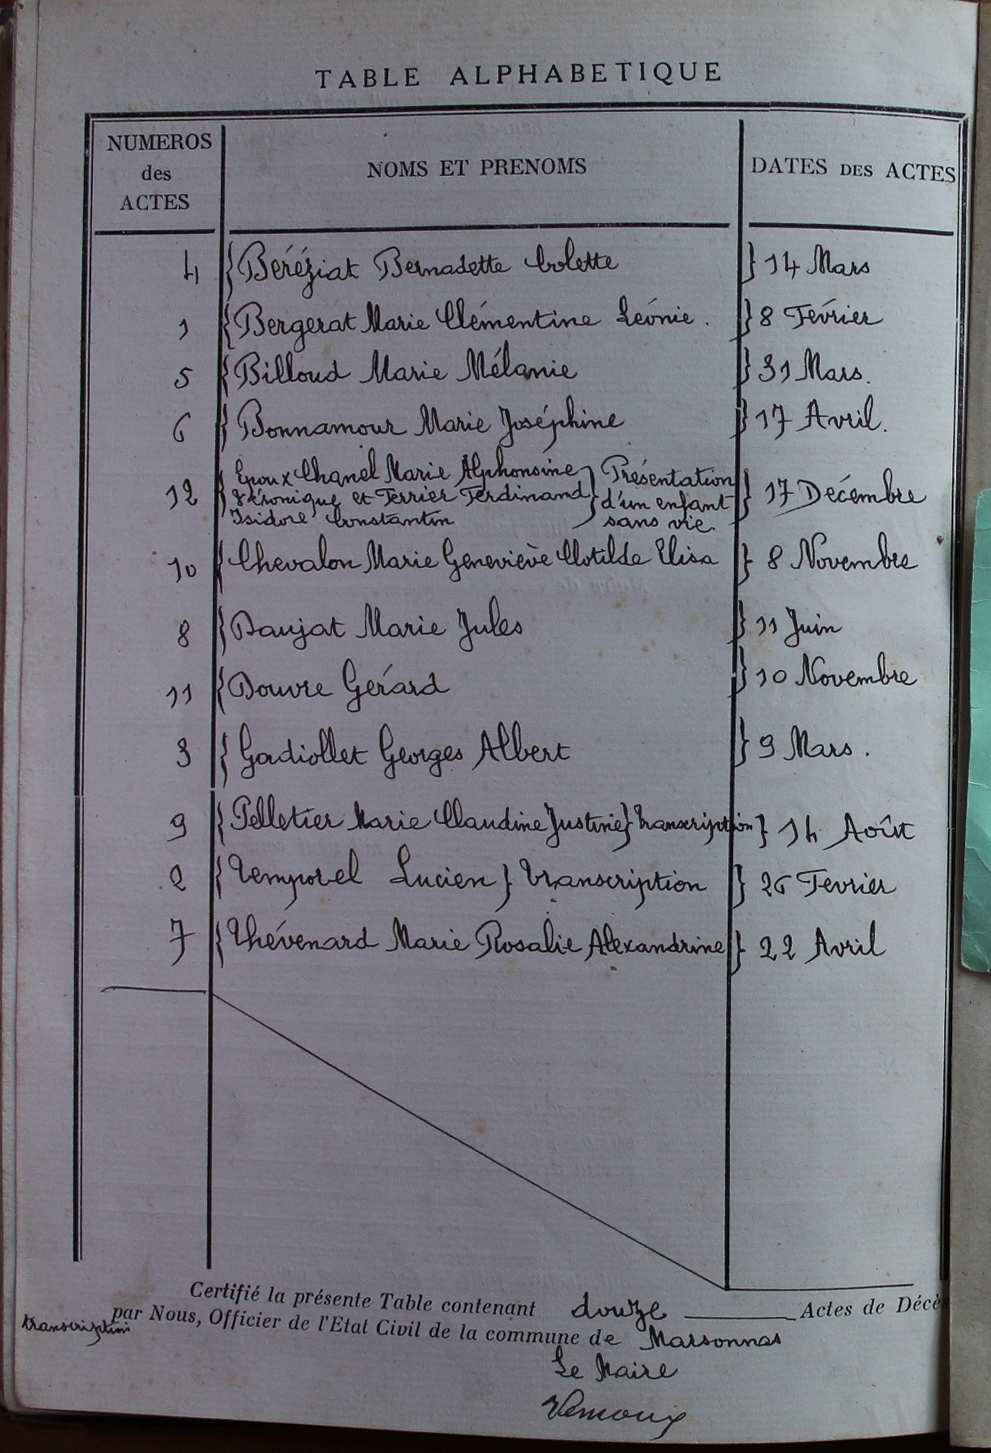 TABLE ALPHABETIQUE
NUMEROS des ACTES NOMS ET PRENOMS DATES DES ACTES
4 { Béréziat Bernadette Colette } 14 Mars
1 { Bergerat Marie Clémentine Léonie. } 8 Février
5 { Billoud Marie Mélanie } 31 Mars.
6 { Bonnamour Marie Joséphine } 17 Avril.
12 { Epoux Chanel Marie Alphonsine } Présentation } 17 Décembre
Véronique et Terrier Ferdinand d'un enfant
Isidore Constantin sans vie
10 { Chevalon Marie Geneviève Clotilde Elisa } 8 Novembre
8 { Daujat Marie Jules } 11 Juin
11 { Douvre Gérard } 10 Novembre
3 { Gadiollet Georges Albert } 9 Mars.
9 { Pelletier Marie Claudine Justine } transcription } 14 Août
2 { Temporel Lucien } transcription } 26 Fevrier
7 { Thévenard Marie Rosalie Alexandrine } 22 Avril
Certifié la présente Table contenant douze Actes de Décès
transcription par Nous, Officier de l'Etat Civil de la commune de Marsonnas
Le Maire